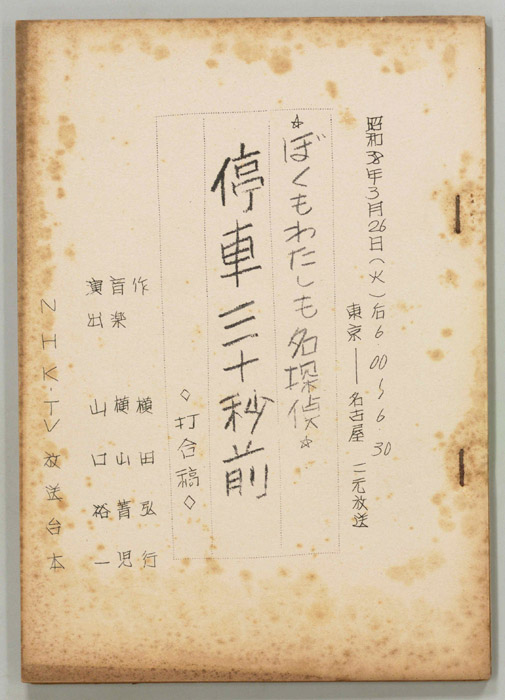 昭和38年3月26日(火)后6.00〜6.30
東京——名古屋 二元放送
☆ぼくもわたしも名探偵☆
停車三十秒前
◇打合稿◇
作 横田弘行
音楽 横山菁児
演出 山口裕一
NHK・TV放送台本